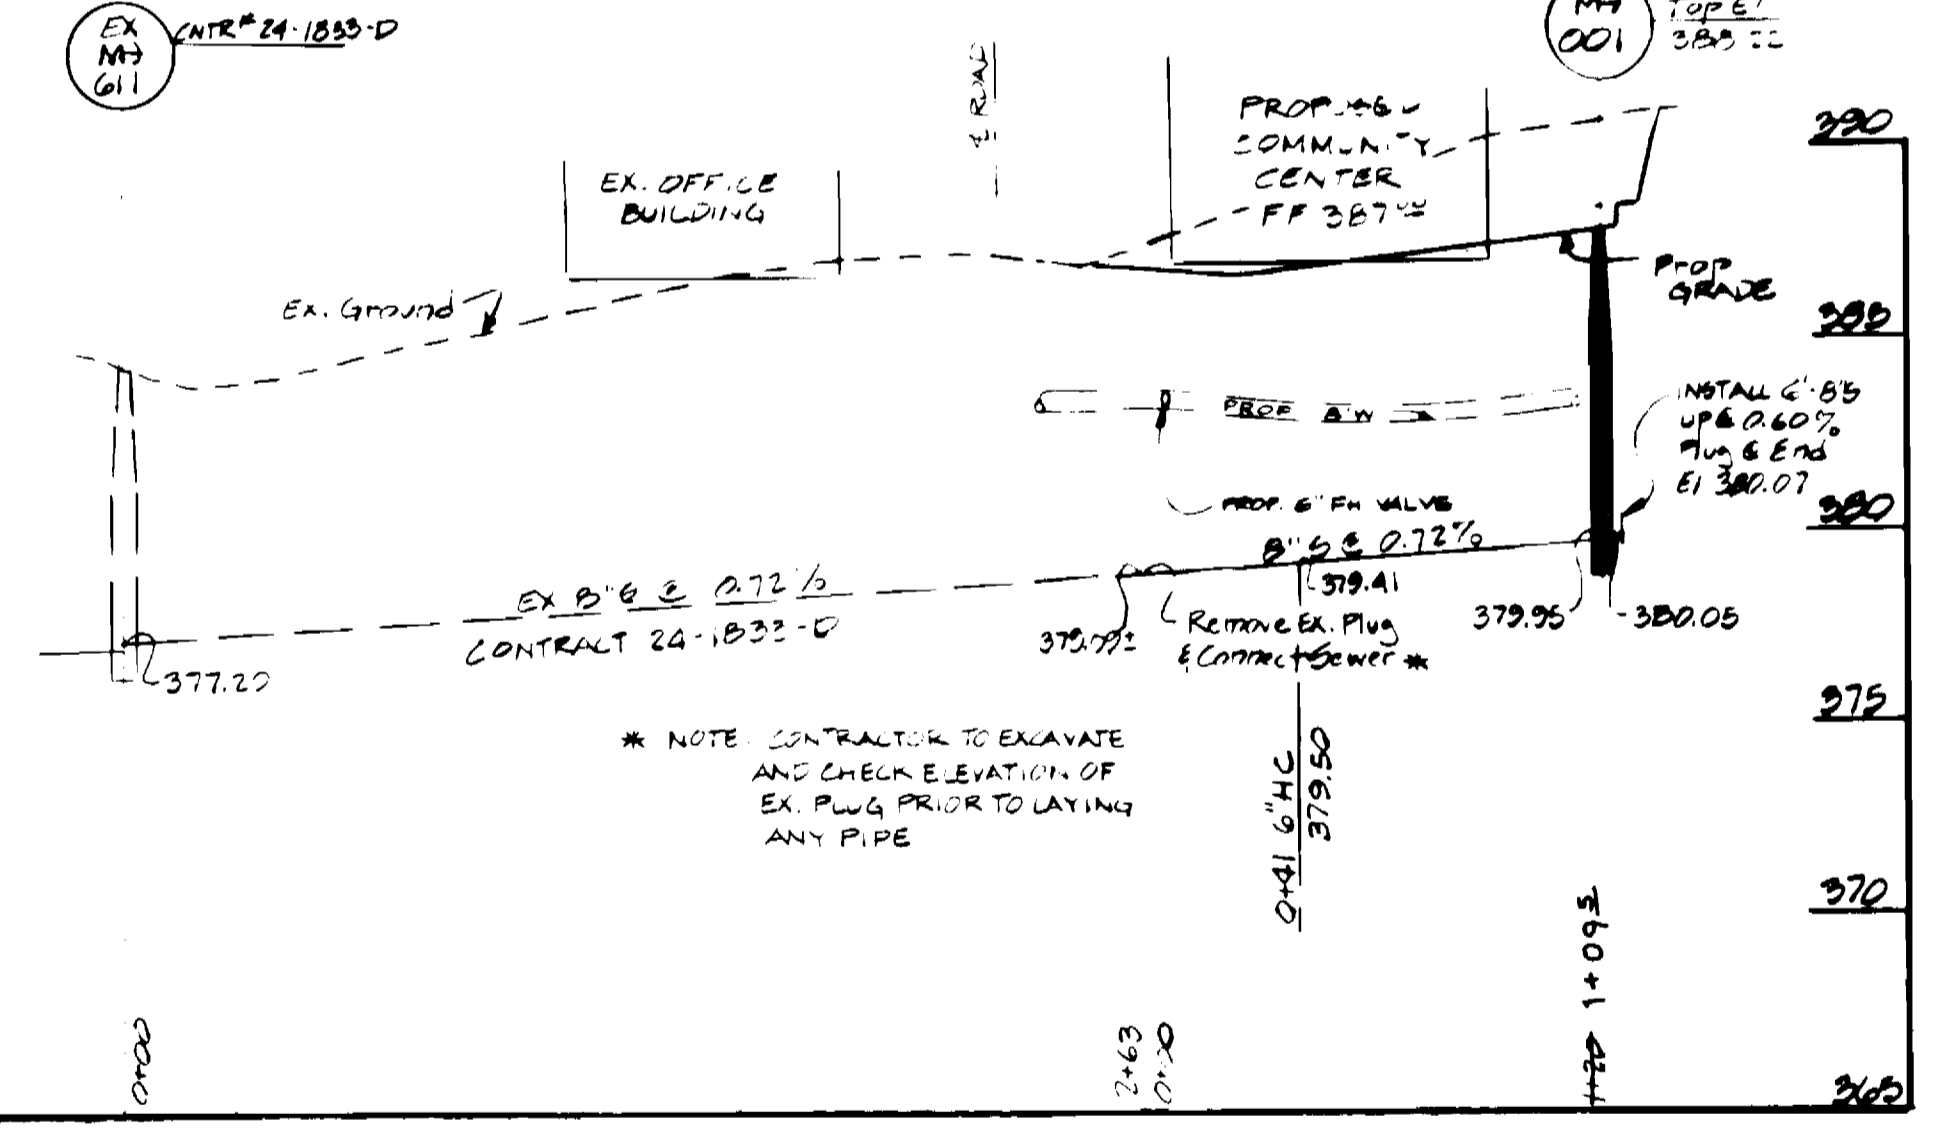 EX
MH
611
CNTR# 24-1833-D
MH
001
TOP El
℄ ROAD
EX. OFFICE
BUILDING
COMMUNITY
CENTER
FF 387
Ex. Ground
Prop
GRADE
390
385
380
375
370
365
PROP 8"W
INSTALL 6'-8"S
UP @ 0.60%
Plug @ End
El 380.07
PROP. 6" FH VALVE
8"S @ 0.72%
EX 8"S @ 0.72%
CONTRACT 24-1833-D
377.20
379.41
Remove Ex. Plug
& Connect Sewer *
379.95
380.05
* NOTE: CONTRACTOR TO EXCAVATE
AND CHECK ELEVATION OF
EX. PLUG PRIOR TO LAYING
ANY PIPE
0+41 6"HC
379.50
0+00
2+63
0+00
1+20 1+09.5